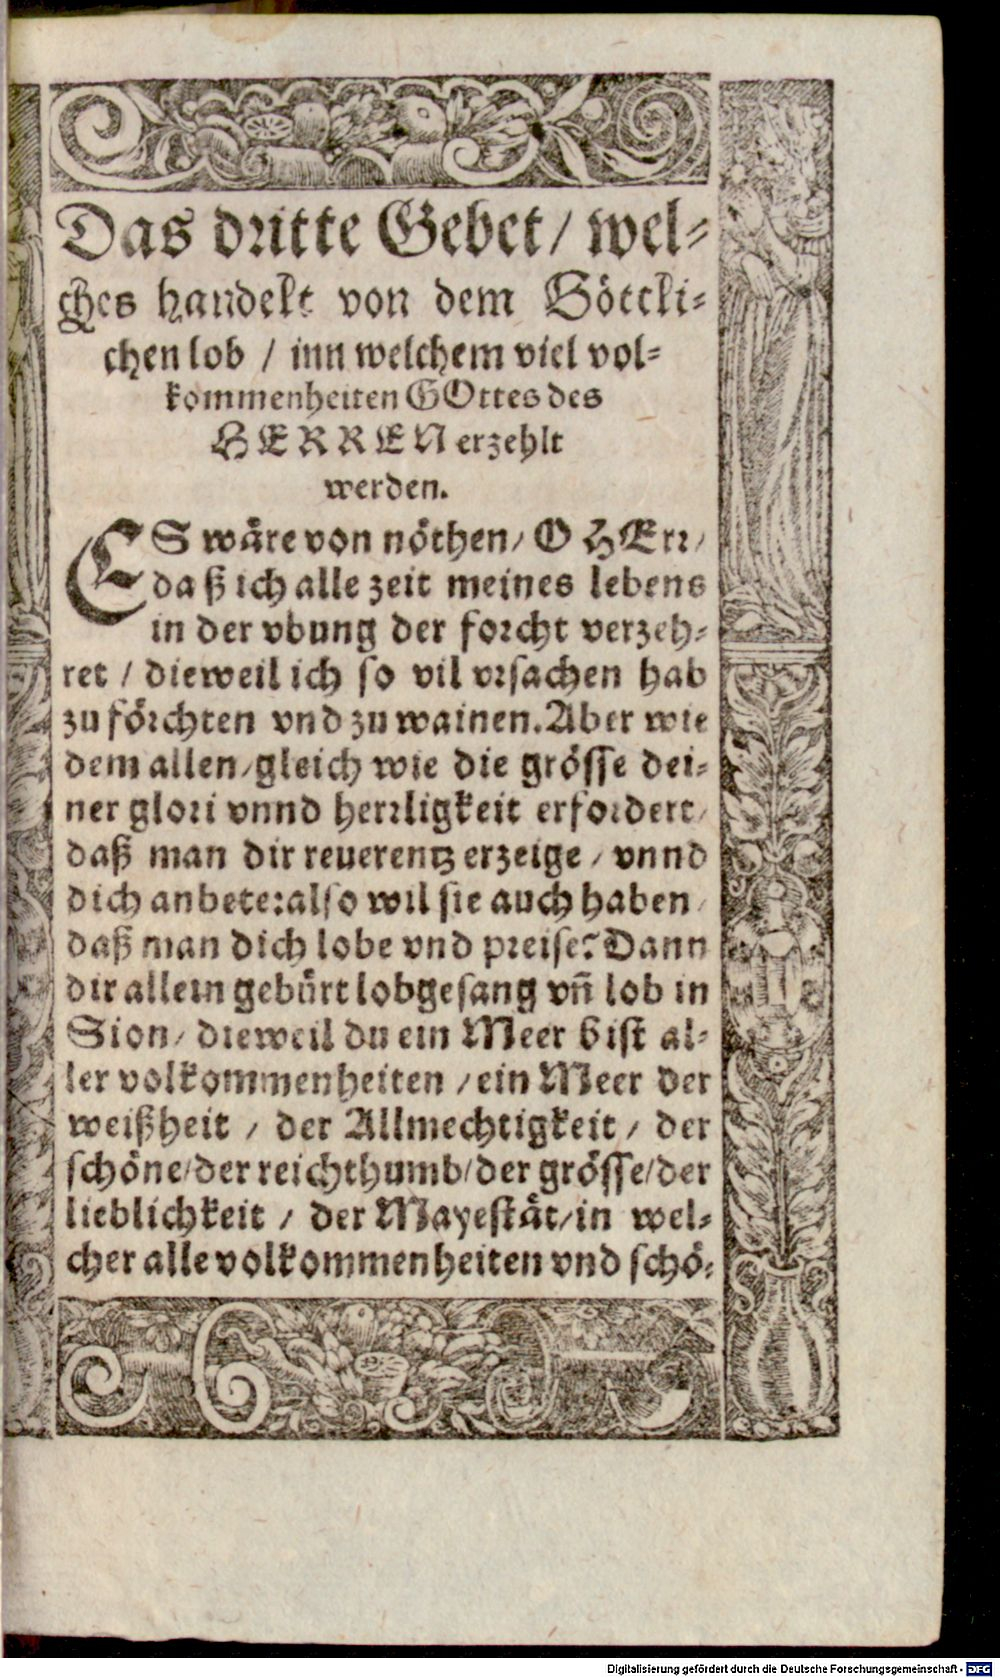 Das dritte Gebet / wel⸗
ches handelt von dem Göttli⸗
chen lob / inn welchem viel vol⸗
kommenheiten GOttes des
HERREN erzehlt
werden.
ES wäre von nöthen / O HErr /
daß ich alle zeit meines lebens
in der vbung der forcht verzeh⸗
ret / dieweil ich so vil vrsachen hab
zu förchten vnd zu wainen. Aber wie
dem allen / gleich wie die grösse dei⸗
ner glori vnnd herrligkeit erfordert /
daß man dir reuerentz erzeige / vnnd
dich anbete: also wil sie auch haben /
daß man dich lobe vnd preise? Dann
dir allein gebürt lobgesang vñ lob in
Sion / dieweil du ein Meer bist al⸗
ler volkommenheiten / ein Meer der
weißheit / der Allmechtigkeit / der
schöne / der reichthumb / der grösse / der
lieblichkeit / der Mayestät / in wel⸗
cher alle volkommenheiten vnd schö⸗
Digitalisierung gefördert durch die Deutsche Forschungsgemeinschaft - DFG